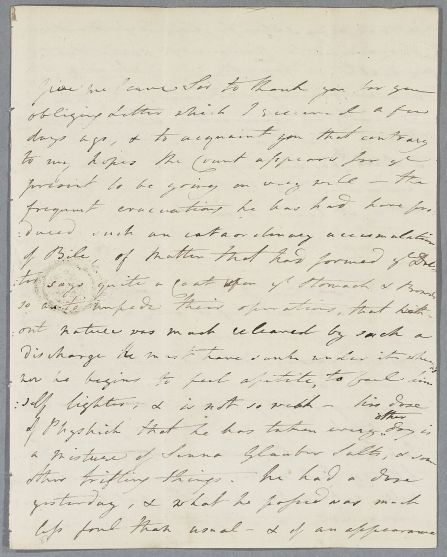 give me leave Sir to thank you for your
obliging letter which I received a few
days ago, & to acquaint you that contrary
to my hopes the Count appears for ye
present to be going on very well — the
frequent evacuations he has had have pro
duced such an extraordinary accumulation
of Bile, of matter that had formed ye Doc
tor says quite a coat upon ye Stomach &
so as to impede their operations, that with
out nature was much relieved by such a
discharge he must have sunk under it
nor he begins to feel apetite, to feel him
self lighter, & is not so weak — his dose
of Physhick that he has taken every other day is
a mixture of Senna Glauber Salts, & some
other trifling things. he had a dose
yesterday, & what he passed was much
less foul than usual — & of an appearance